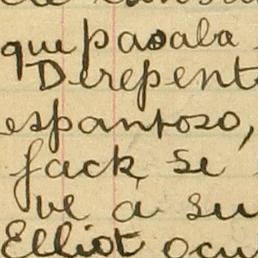 que pasaba
Derepent
espantoso,
Jack se
ve a su
Elliot ocu